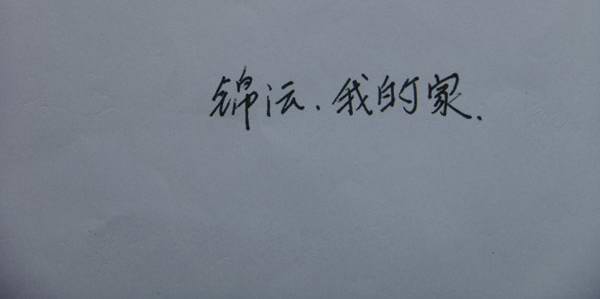 锦沄、我的家.